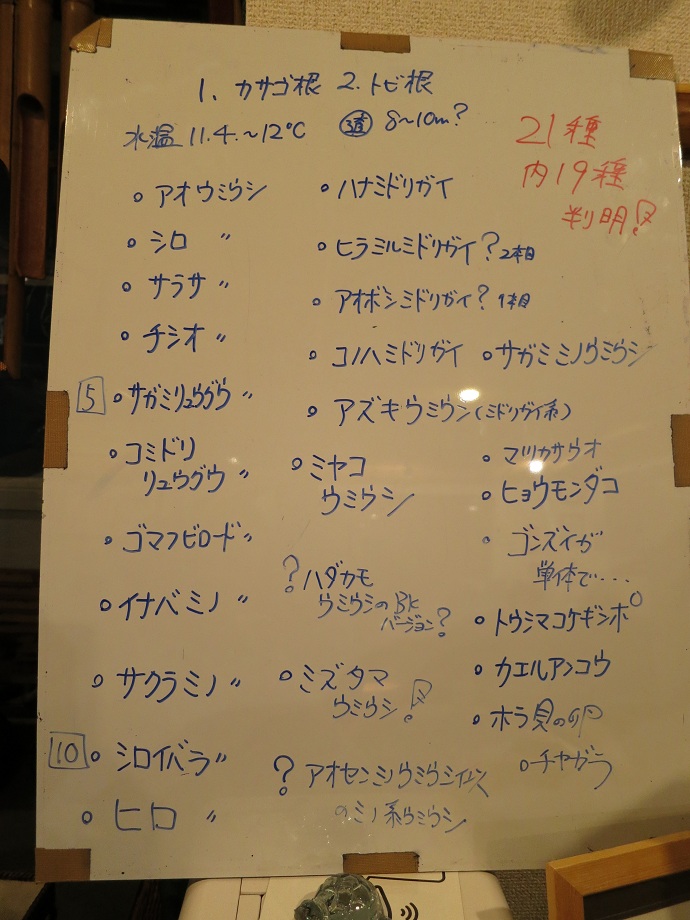 1. カサゴ根 2. トビ根
水温 11.4.～12℃ 透 8～10m?
21種
内19種
判明!
アオウミウシ
シロ 〃
サラサ 〃
チシオ 〃
5 サガミリュウグウ 〃
コミドリ
リュウグウ 〃
ゴマフビロード 〃
イナバミノ 〃
サクラミノ 〃
10 シロイバラ 〃
ヒロ 〃
ハナミドリガイ
ヒラミルミドリガイ? 2本目
アオボシミドリガイ? 1本目
コノハミドリガイ
サガミミノウミウシ
アズキウミウシ(ミドリガイ系)
ミヤコ
ウミウシ
? ハダカモ
ウミウシのBK
バージョン?
ミズタマ
ウミウシ!
? アオセンミノウミウシ
のミノ系ウミウシ
マツカサウオ
ヒョウモンダコ
ゴンズイが
単体で・・・
トウシマコケギンポ
カエルアンコウ
ホラ貝の卵
チャガラ